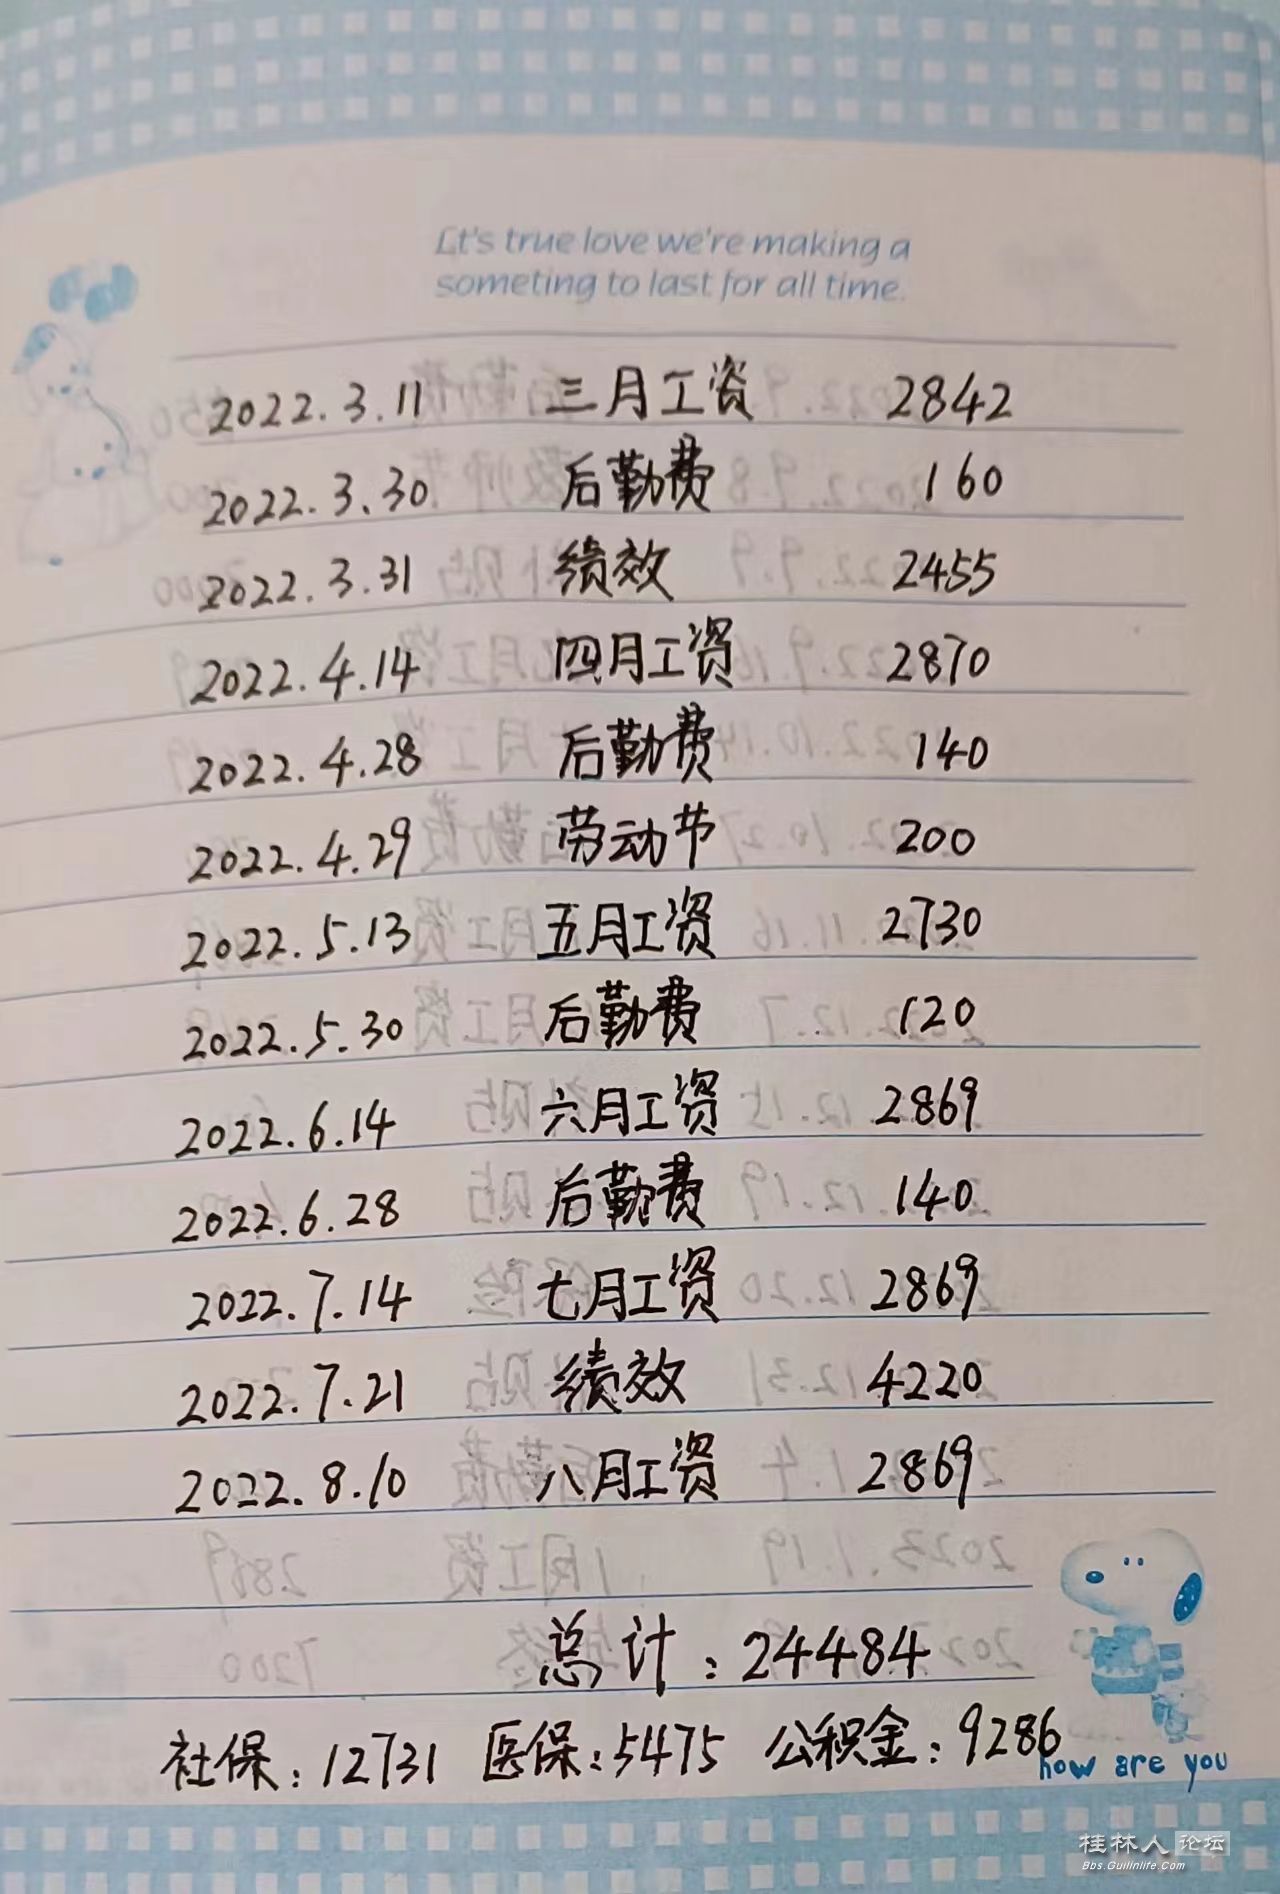 Let's true love we're making a
someting to last for all time.
2022.3.11 三月工资 2842
2022.3.30 后勤费 160
2022.3.31 绩效 2455
2022.4.14 四月工资 2870
2022.4.28 后勤费 140
2022.4.29 劳动节 200
2022.5.13 五月工资 2730
2022.5.30 后勤费 120
2022.6.14 六月工资 2869
2022.6.28 后勤费 140
2022.7.14 七月工资 2869
2022.7.21 绩效 4220
2022.8.10 八月工资 2869
总计：24484
社保：12731 医保：5475 公积金：9286
how are you
桂林人论坛
Bbs.Guilinlife.Com